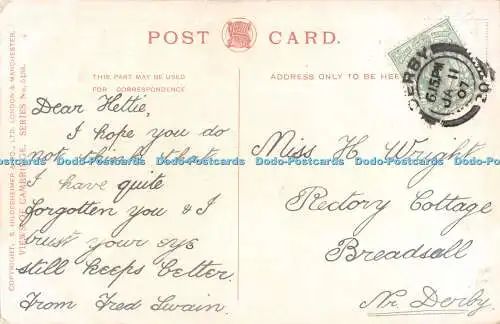 POST CARD.
THIS PART MAY BE USED
FOR CORRESPONDENCE
ADDRESS ONLY TO BE HERE
COPYRIGHT, S. HILDESHEIMER & CO., LTD. LONDON & MANCHESTER.
VIEWS OF CAMBRIDGE. SERIES No. 5198.
DERBY
6.15PM
JA 11
07
Dear Hettie,
I hope you do
not think that
I have quite
forgotten you & I
trust your eye
still keeps better.
From Fred Swain.
Miss H. Wright
Rectory Cottage
Breadsall
Nr. Derby
Dodo-Postcards Dodo-Postcards Dodo-Postcards Dodo-Postcards